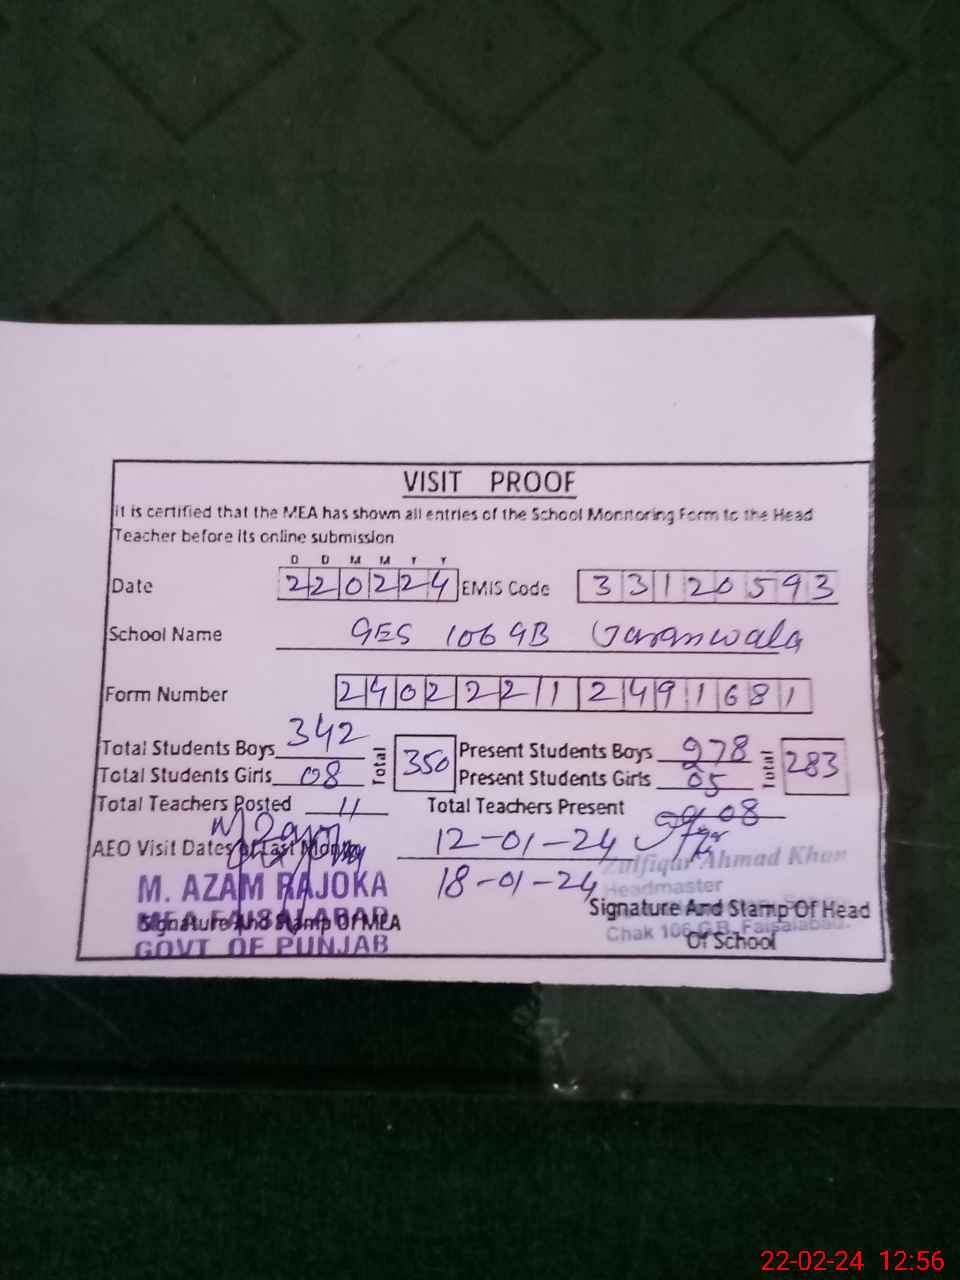 VISIT PROOF
it is certified that the MEA has shown all entries of the School Monitoring Form to the Head
Teacher before its online submission
D D M M Y Y
Date 220224 EMIS Code 33120593
School Name GES 106 GB Jaranwala
Form Number 240222112491681
Total Students Boys 342 Total 350 Present Students Boys 278 Total 283
Total Students Girls 08 Present Students Girls 05
Total Teachers Posted 11 Total Teachers Present 08
AEO Visit Dates of Last Month 12-01-24
18-01-24
Zulfiqar Ahmad Khan
Headmaster
Chak 106 G.B. Faisalabad.
Signature And Stamp Of Head
Of School
M. AZAM RAJOKA
MEA FAISALABAD
GOVT OF PUNJAB
Signature And Stamp Of MEA
22-02-24 12:56